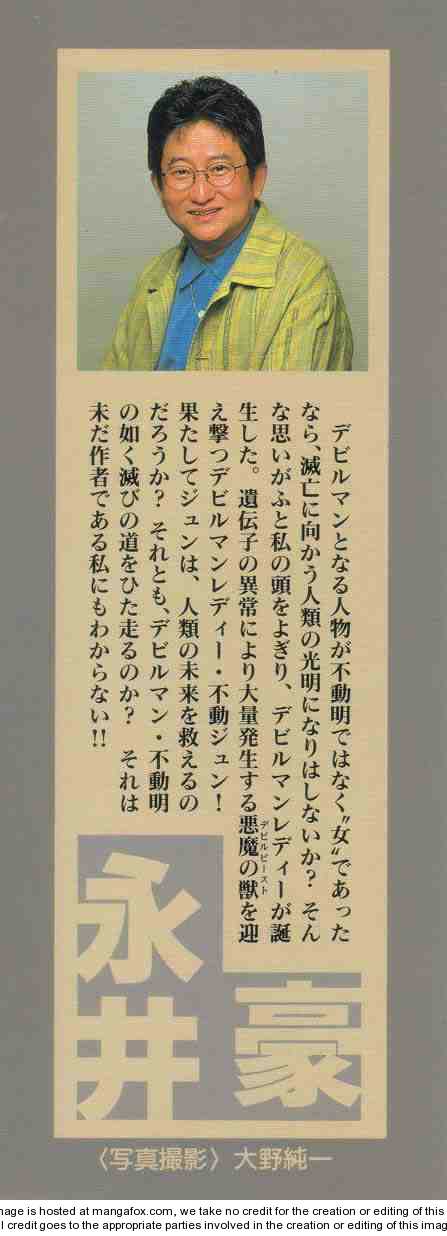 デビルマンとなる人物が不動明ではなく〝女〟であった
なら、滅亡に向かう人類の光明になりはしないか？ そん
な思いがふと私の頭をよぎり、デビルマンレディーが誕
生した。遺伝子の異常により大量発生する悪魔の獣を迎
デビルビースト
え撃つデビルマンレディー・不動ジュン！
果たしてジュンは、人類の未来を救えるの
だろうか？ それとも、デビルマン・不動明
の如く滅びの道をひた走るのか？ それは
未だ作者である私にもわからない!!
永井
豪
〈写真撮影〉大野純一
mage is hosted at mangafox.com, we take no credit for the creation or editing of this
l credit goes to the appropriate parties involved in the creation or editing of this imag